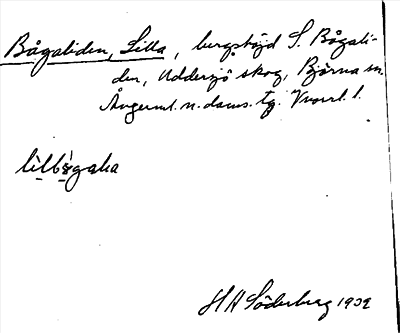 Bågaliden, Lilla, bergshöjd S. Bågali-
den, Uddersjö skog, Björna sn.
Ångerml. n. doms. tg. Vnorrl. l.
lìlbågaka
H H Söderberg 1932